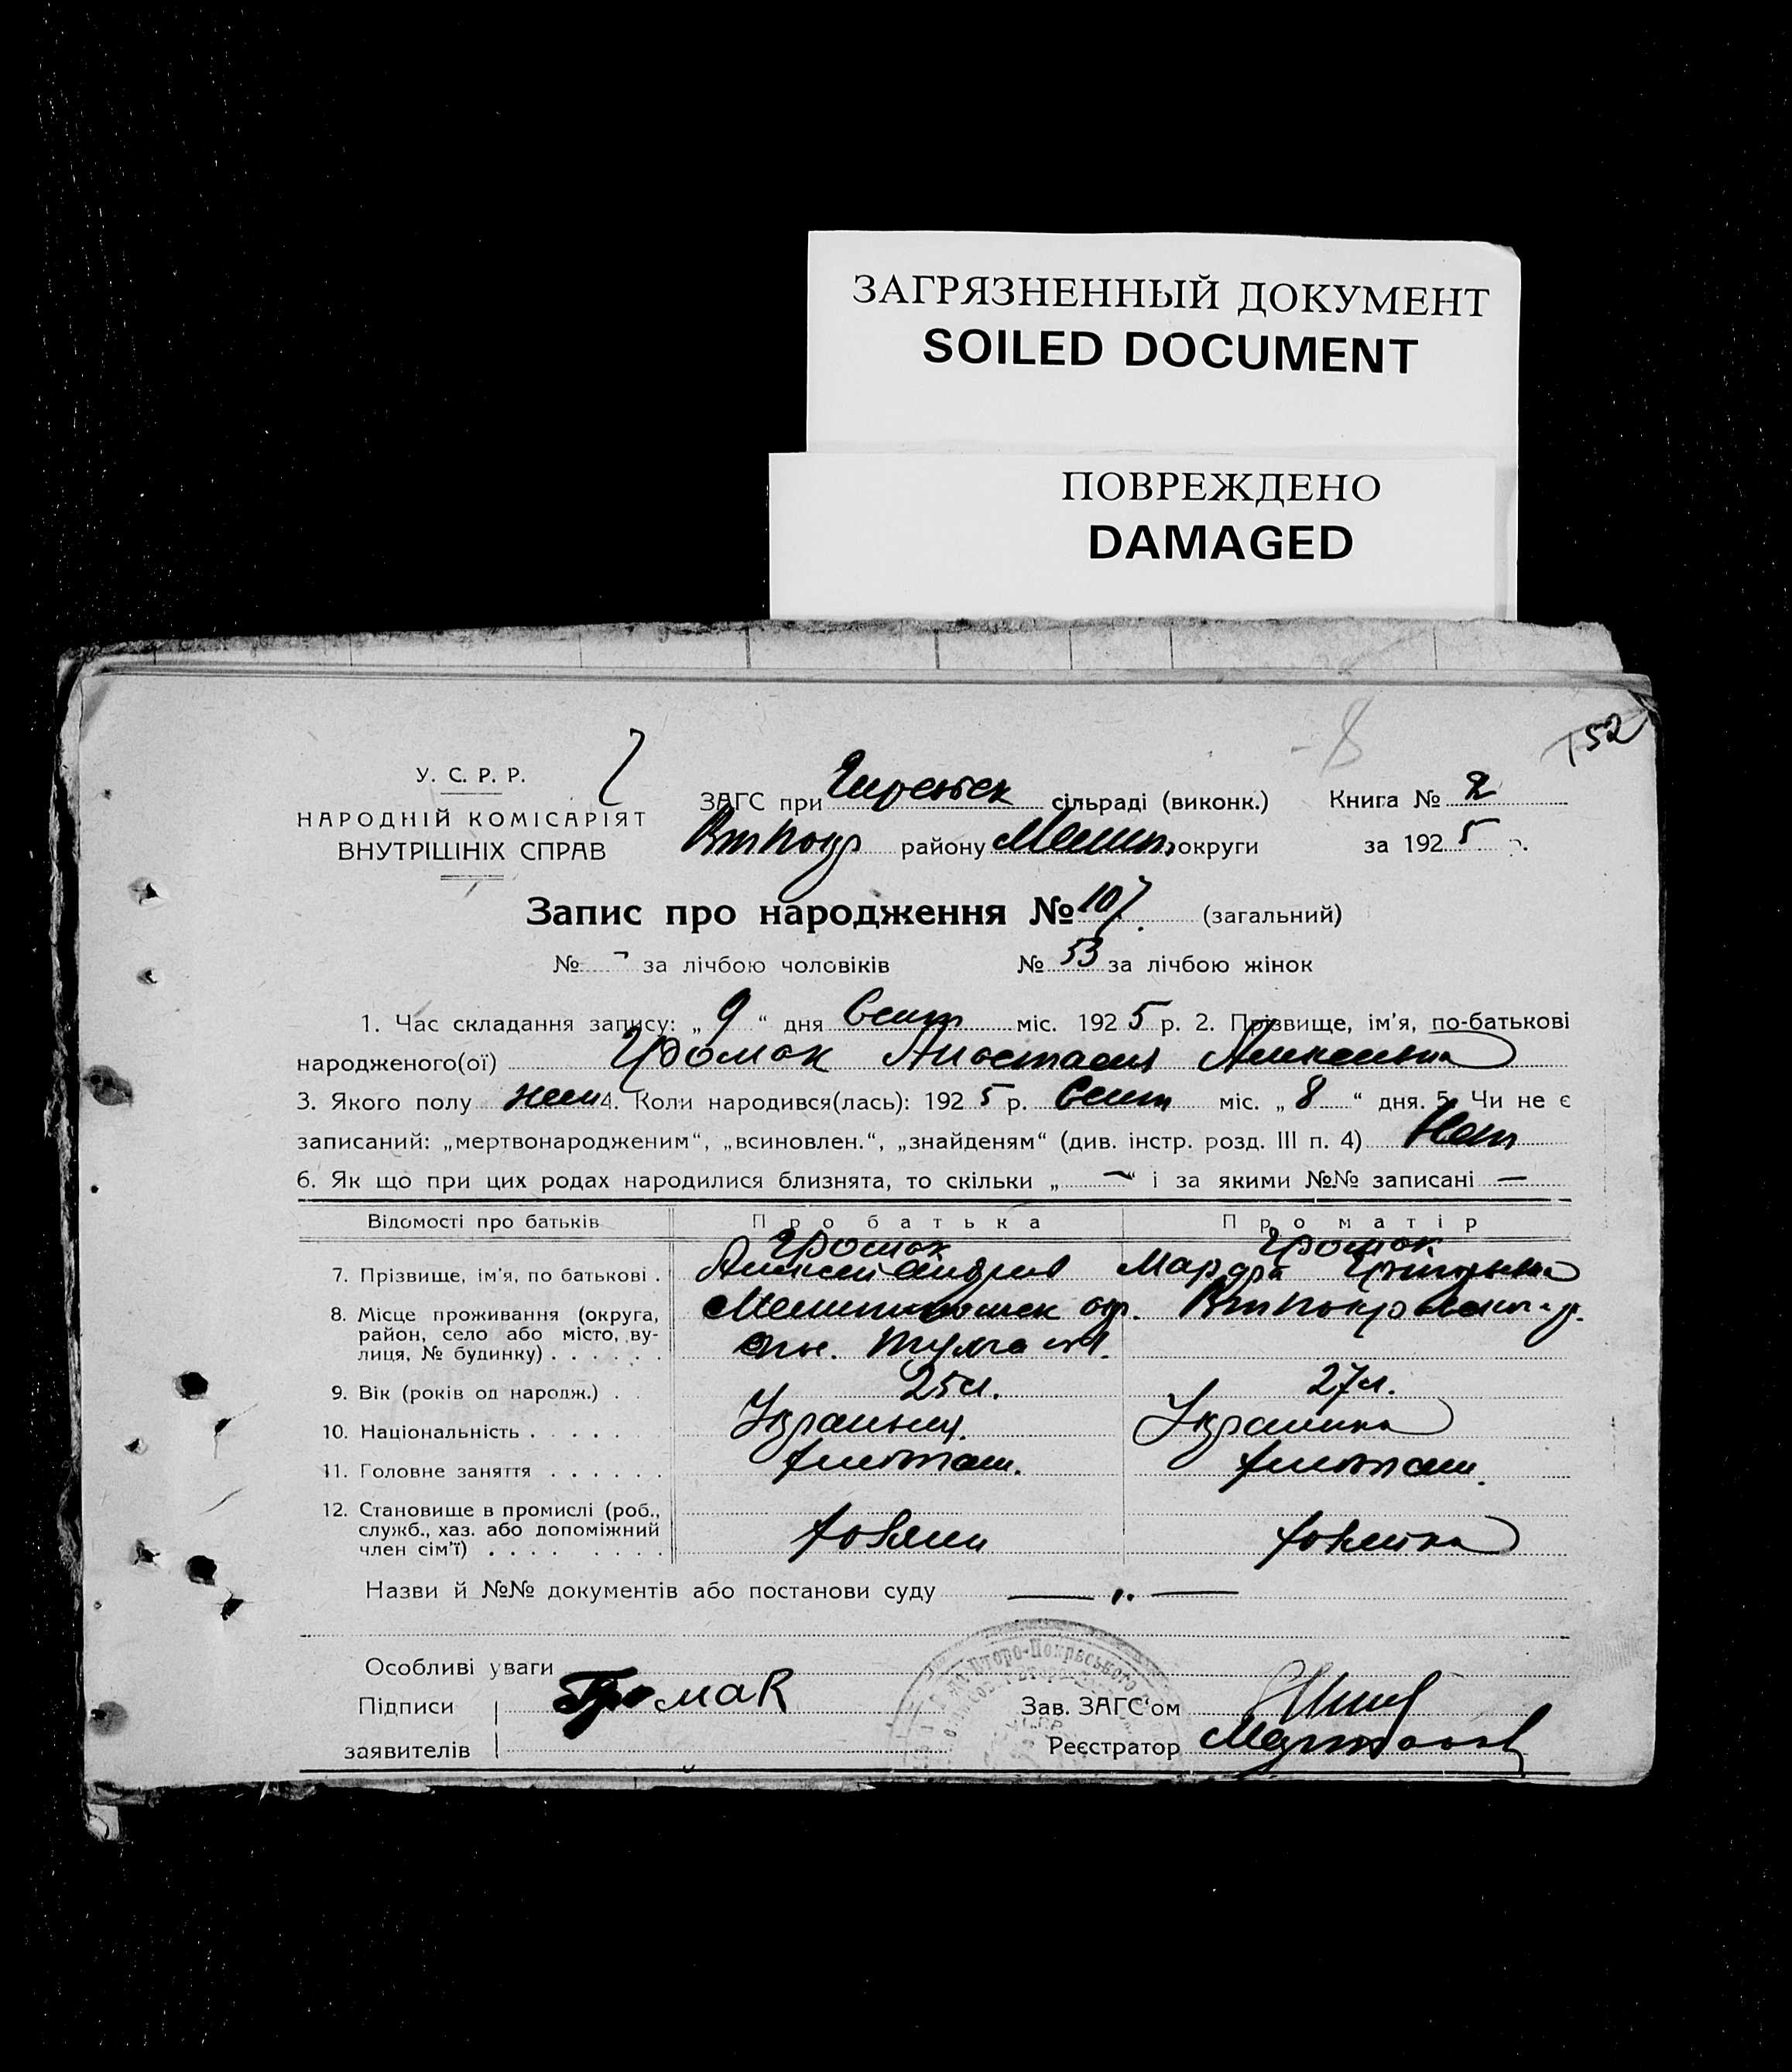 ЗАГРЯЗНЕННЫЙ ДОКУМЕНТ
SOILED DOCUMENT
ПОВРЕЖДЕНО
DAMAGED
52
8
У. С. Р. Р.
НАРОДНІЙ КОМІСАРІЯТ
ВНУТРІШНІХ СПРАВ
ЗАГС при сільраді (виконк.) Книга № 2
району Мелит. округи за 1925 р.
Запис про народження № 107 (загальний)
№ - за лічбою чоловіків № 53 за лічбою жінок
1. Час складання запису: „ 9 “ дня Сент міс. 1925 р. 2. Прізвище, ім'я, по-батькові
народженого(ої) Громак Анастасия Алексеевна
3. Якого полу жен 4. Коли народився(лась): 1925 р. Сент міс. „ 8 “ дня. 5. Чи не є
записаний: „мертвонародженим“, „всиновлен.“, „знайденям“ (див. інстр. розд. III п. 4) Нет
6. Як що при цих родах народилися близнята, то скільки „ — “ і за якими №№ записані —
Відомості про батьків Про батька Про матір
Громак Громак
7. Прізвище, ім'я, по батькові . Алексей Андреев Марфа Григорьевна
8. Місце проживання (округа,
район, село або місто, вулиця, № будинку) . . . . . .
9. Вік (років од народж.) . 25 л. 27 л.
10. Національність . . . . . Украинец. Украинка
11. Головне заняття . . . . . . хлебопаш. хлебопаш.
12. Становище в промислі (роб.,
служб., хаз. або допоміжний
член сім'ї) . . . . . . . . хозяин хозяйка
Назви й №№ документів або постанови суду — „ —
Особливі уваги
Підписи Громак Зав. ЗАГС'ом
заявителів Реєстратор